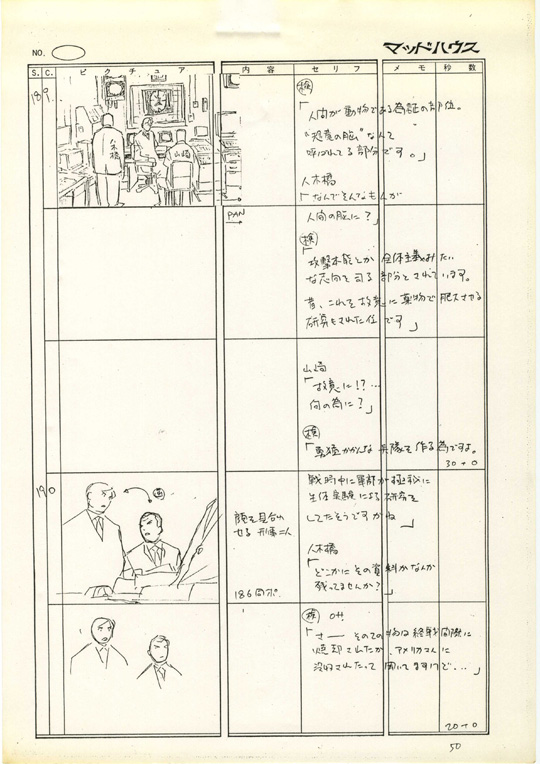 NO.
マッドハウス
S. C. ピクチュア 内容 セリフ メモ 秒数
189
八木橋
山崎
PAN
検
「人間が動物である為の部位。
"恐竜の脳"なんて
呼ばれてる部分です。」
八木橋
「なんでそんなもんが
人間の脳に?」
検
「攻撃本能とか全体主義みたい
な志向を司る部分とされています。
昔、これを故意に薬物で肥大させる
研究もされた位です」
山崎
「故意に!?…
何の為に?」
検
「勇猛かかんな兵隊を作る為ですよ。
30+0
190
顔を見合わ
せる刑事二人
186同ポ
戦時中に軍部が極秘に
生体実験による研究を
してたそうですがね」
八木橋
「どこかにその資料かなんか
残ってませんか?」
検 off
「さー その手の物は終戦間際に
焼却されたか、アメリカさんに
没収されたって聞いてますけど...」
20+0
50